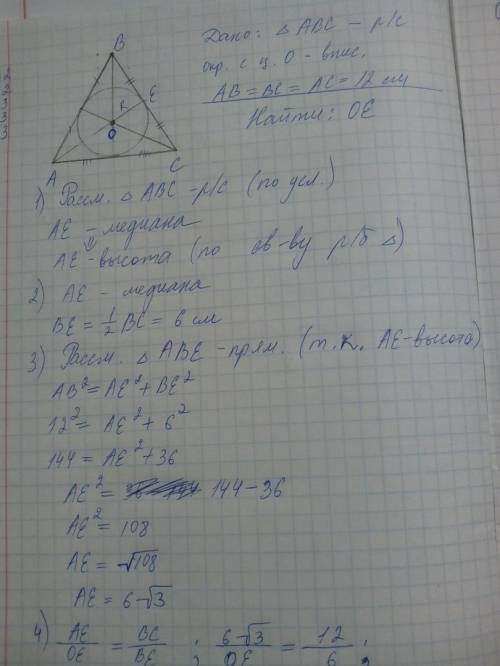 Дано: △ ABC – р/с
окр. с ц. O – впис.
AB = BC = AC = 12 см
Найти: OE
B
E
R
O
A
C
1) Рассм. △ ABC – р/с (по усл.)
AE – медиана
AE – высота (по св-ву р/б △)
2) AE – медиана
BE = 1/2 BC = 6 см
3) Рассм. △ ABE – прям. (т.к. AE – высота)
AB² = AE² + BE²
12² = AE² + 6²
144 = AE² + 36
AE² = 144 – 36
AE² = 108
AE = √108
AE = 6√3
4) AE/OE = BC/BE ; 6√3/OE = 12/6 ;